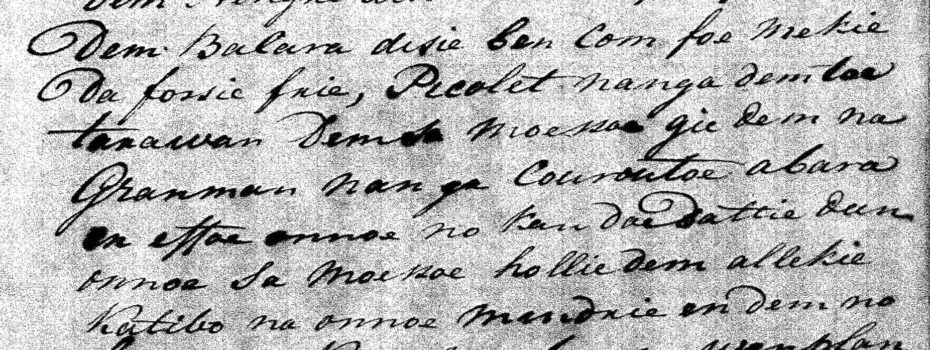 Dem
Dem Bacara disie ben com foe mekie
Da fossie frie, Picolet nanga dem toe
tarawan Dem Sa moesoe gie dem na
Granman nanga Couroutoe abara
en effoe onnoe no kan doe dattie dan
onnoe Sa Moesoe hollie dem allekie
Katibo na onnoe mindrie en dem no